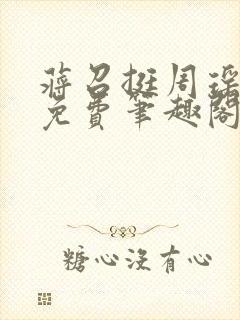 蒋召挺周瑶
免費筆趣閣
糖心没有心